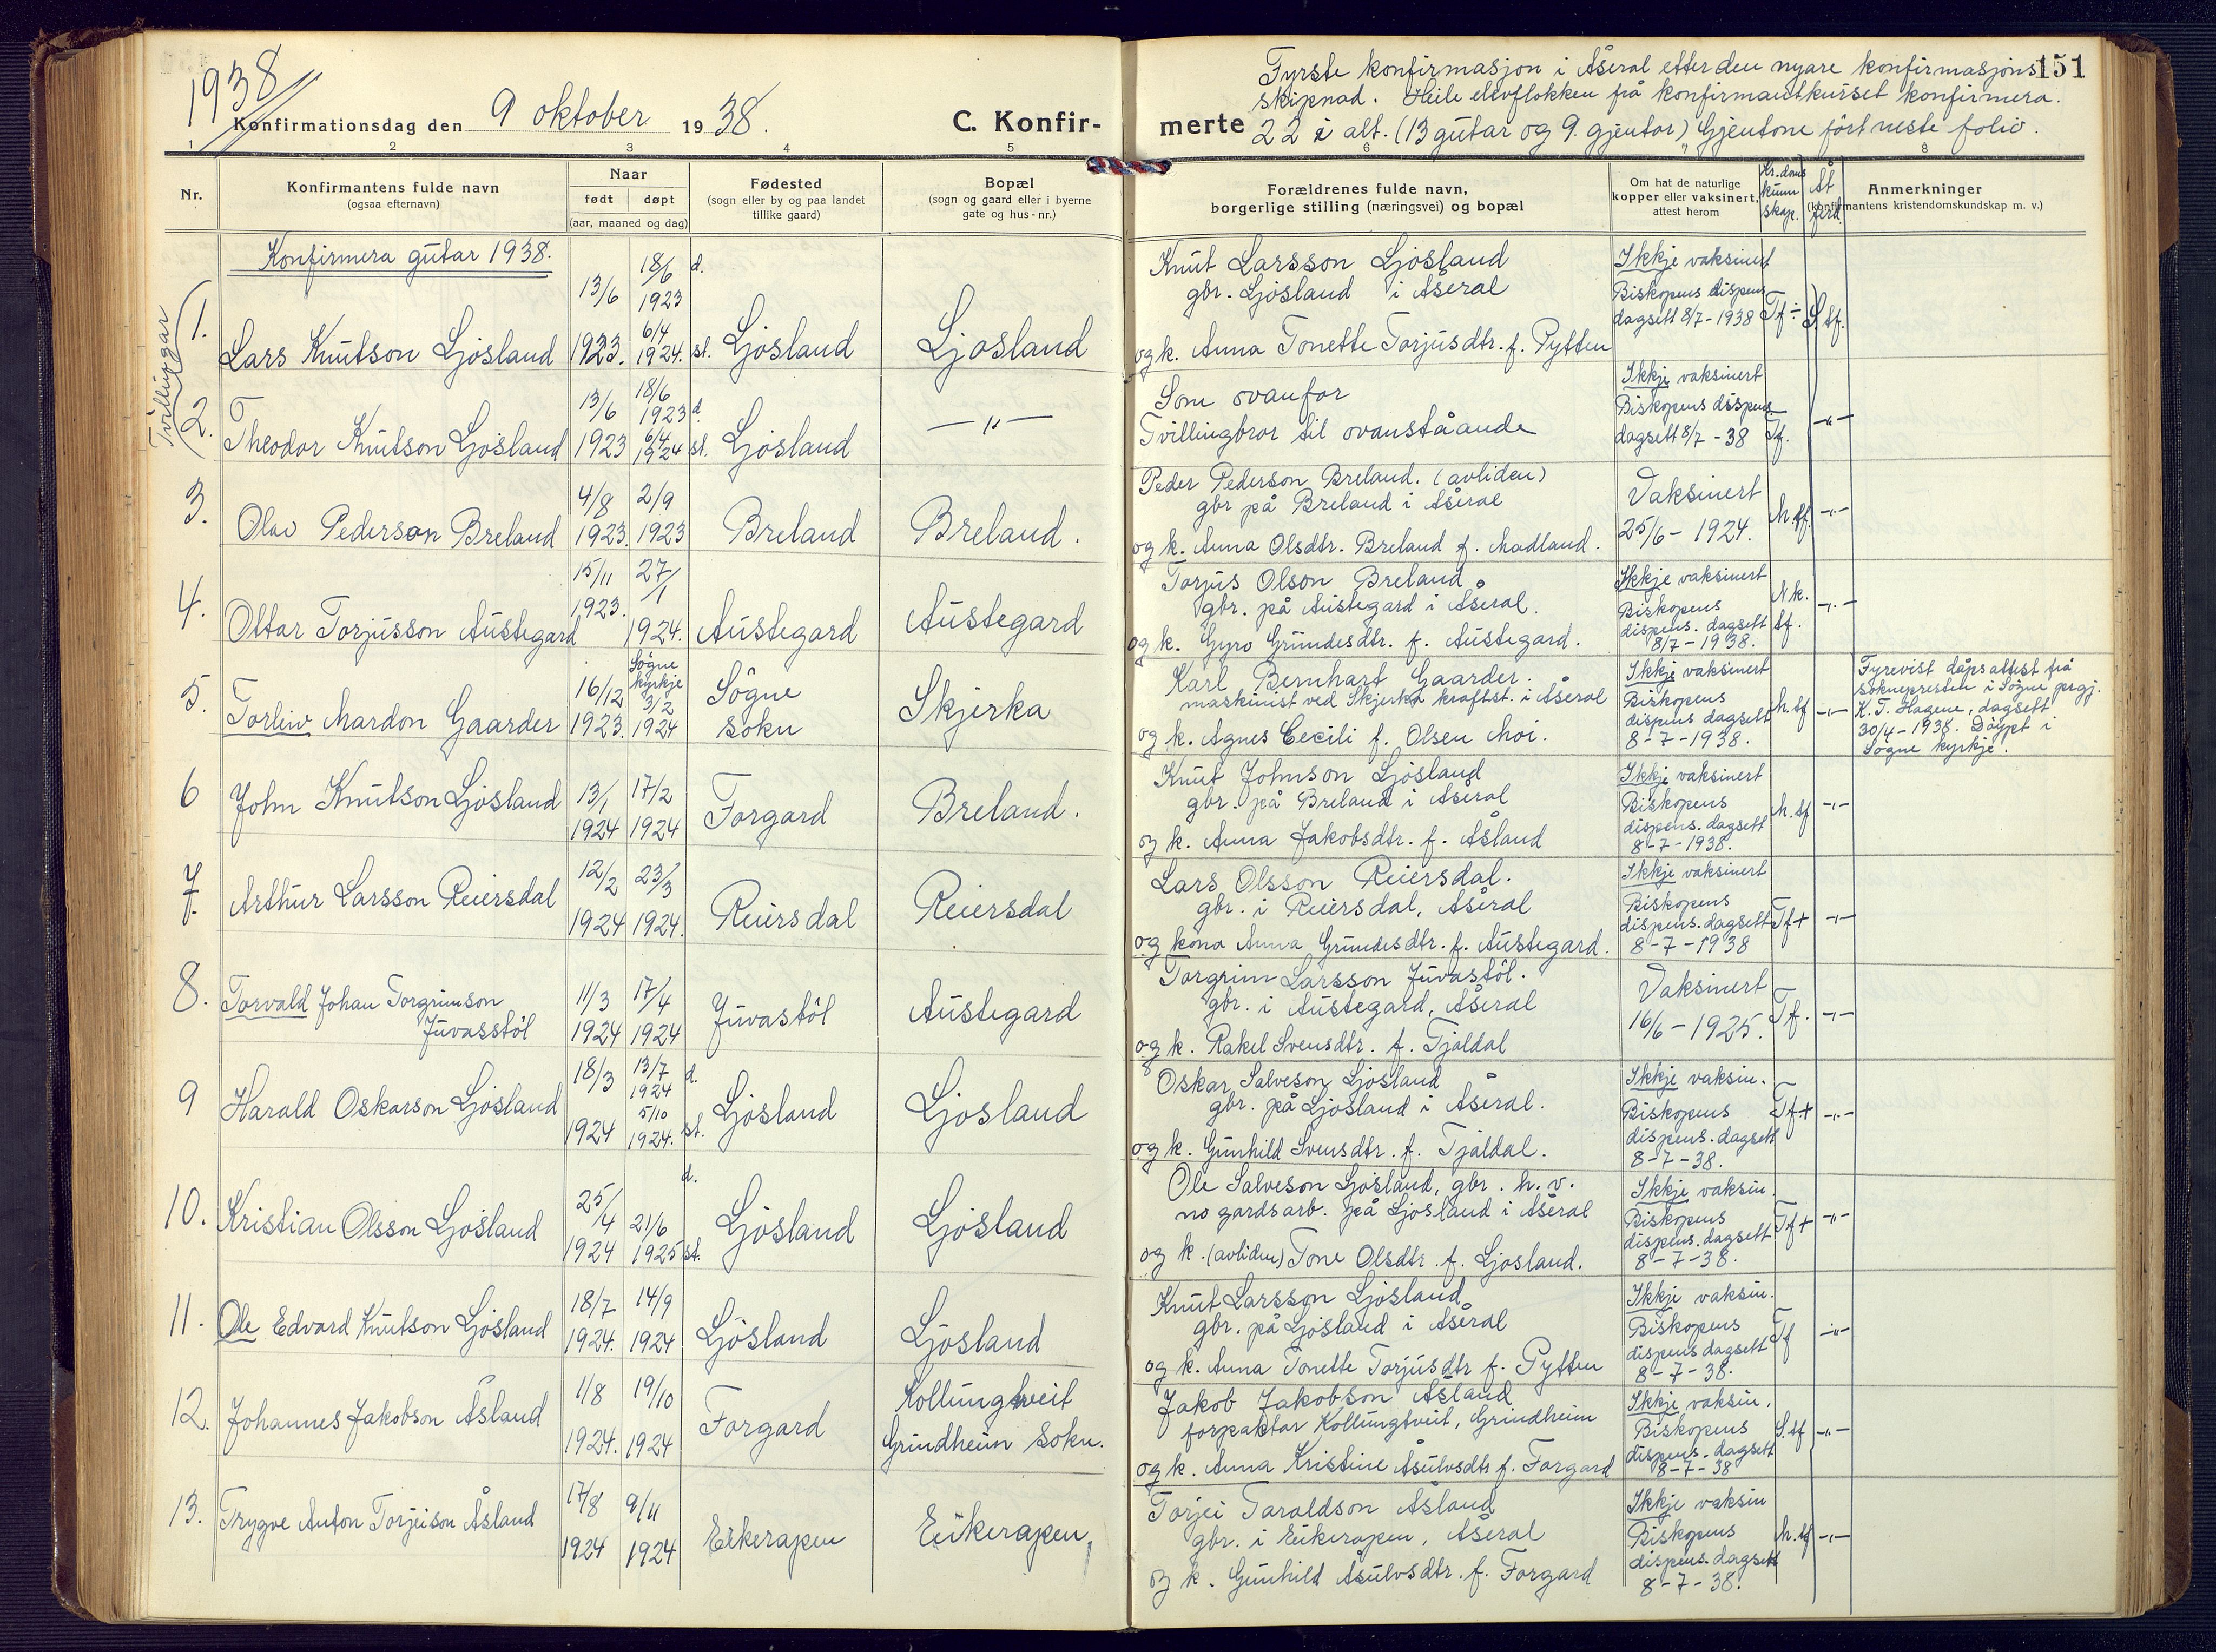 1938
Konfirmationsdag den 9 oktober 1938.
C. Konfir-
1 2 3 4 5
Nr.
Konfirmantens fulde navn
(ogsaa efternavn)
Naar
født døpt
(aar, maaned og dag)
Fødested
(sogn eller by og paa landet
tillike gaard)
Bopæl
(sogn og gaard eller i byerne
gate og hus-nr.)
Konfirmera gutar 1938.
Tvillingar
1. Lars Knutson Ljosland 13/6 1923. 18/6 1923 d. 6/4 1924. st. Ljosland Ljosland
2. Theodor Knutson Ljosland 13/6 1923 18/6 1923 d. 6/4 1924 st. Ljosland —"—
3. Olav Pederson Breland 4/8 1923. 2/9 1923 Breland Breland.
4. Ottar Torjusson Austegard 15/11 1923. 27/1 1924. Austegard Austegard
5. Torleiv Mardon Gaarder 16/12 1923. Søgne kyrkje 3/2 1924 Søgne sokn Skjerka
6 John Knutson Ljosland 13/1 1924 17/2 1924 Forgard Breland.
7. Arthur Larsson Reiersdal 12/2 1924 23/3 1924. Reiersdal Reiersdal
8. Torvald Johan Torgrimson
Juvasstöl 11/3 1924 17/4 1924 Juvastöl Austegard
9 Harald Oskarson Ljosland 18/3 1924 13/7 1924 d. 5/10 1924. st. Ljosland Ljosland
10. Kristian Olsson Ljosland 25/4 1924 d. 21/6 1925 st. Ljosland Ljosland
11. Ole Edvard Knutson Ljosland 18/7 1924. 14/9 1924 Ljosland Ljosland
12. Johannes Jakobson Åsland 1/8 1924. 19/10 1924 Forgard Kollungtveit
Grindheim Sokn.
13. Trygve Anton Torjeison Åsland 17/8 1924 9/11 1924 Eikerapen Eikerapen
151
Fyrste konfirmasjon i Åseral etter den nyare konfirmasjons
skipnad. Heile elevflokken frå konfirmantkurset konfirmera.
merte 22 i alt. (13 gutar og 9 gjentor) Gjentone fört neste folio.
6 7 8
Forældrenes fulde navn,
borgerlige stilling (næringsvei) og bopæl
Om hat de naturlige
kopper eller vaksinert,
attest herom
Kr.doms
kunn
skap.
Åt
ferd
Anmerkninger
(konfirmantens kristendomskundskap m. v.)
Knut Larsson Ljosland
gbr. Ljosland i Åseral
og k. Anna Tonette Torjusdtr. f. Pytten
Ikkje vaksinert
Biskopens dispens
dagsett 8/7-1938
Tf÷ S.tf.
Som ovanfor
Tvillingbror til ovanståande
Ikkje vaksinert
Biskopens dispens.
dagsett 8/7-38
Tf. —"—
Peder Pederson Breland. (avliden)
gbr på Breland i Åseral
og k. Anna Olsdtr. Breland f. Madland.
Vaksinert
25/6-1924.
M.tf. —"—
Torjus Olson Breland
gbr. på Austegard i Åseral.
og k. Gyro Grundesdtr. f. Austegard.
Ikkje vaksinert
Biskopens
dispens. dagsett
8/7-1938.
N.k.
tf. —"—
Karl Bernhart Gaarder.
maskinist ved Skjerka kraftst. i Åseral
og k. Agnes Cecili f. Olsen Moi.
Ikkje vaksinert
Biskopens
dispens dagsett
8-7-1938.
M.tf —"—
Fyrevist dåpsattest frå
soknepresten i Søgne prgj.
K. T. Hagene, dagsett
30/4-1938. Döypt i
Søgne kyrkje.
Knut Johnson Ljosland
gbr. på Breland i Åseral
og k. Anna Jakobsdtr. f. Åsland
Ikkje vaksinert
Biskopens
dispens. dagsett
8-7-1938.
M.tf —"—
Lars Olsson Reiersdal.
gbr. i Reiersdal, Åseral
og kona Anna Grundesdtr. f. Austegard.
Ikkje vaksinert
Biskopens
dispens. dagsett
8-7-1938
Tf+ —"—
Torgrim Larsson Juvastöl.
gbr. i Austegard, Åseral
og k. Rakel Svensdtr. f. Tjaldal
Vaksinert
16/6-1925.
Tf. —"—
Oskar Salveson Ljosland
gbr. på Ljosland i Åseral.
og k. Gunhild Svensdtr. f. Tjaldal.
Ikkje vaksin.
Biskopens
dispens. dagsett
8-7-38.
Tf+ —"—
Ole Salveson Ljosland, gbr. h. v.
no gardsarb. på Ljosland i Åseral
og k. (avliden) Tone Olsdtr. f. Ljosland.
Ikkje vaksin.
Biskopens
dispens. dagsett
8-7-38.
Tf+ —"—
Knut Larsson Ljosland
gbr. på Ljosland i Åseral
og k. Anna Tonette Torjusdtr f. Pytten
Ikkje vaksin.
Biskopens
dispens dagsett
8-7-38.
Tf —"—
Jakob Jakobson Åsland
forpaktar Kollungtveit, Grindheim
og k. Anna Kristine Åsulvsdtr f. Forgard
Ikkje vaksin,
Biskopens
dispens. dagsett
8-7-38
S.tf —"—
Torjei Taraldson Åsland
gbr. i Eikerapen, Åseral
og k. Gunhild Åsulvsdtr. f. Forgard
Ikkje vaksin
Biskopens
dispens. dagsett
8-7-38.
M.tf —"—